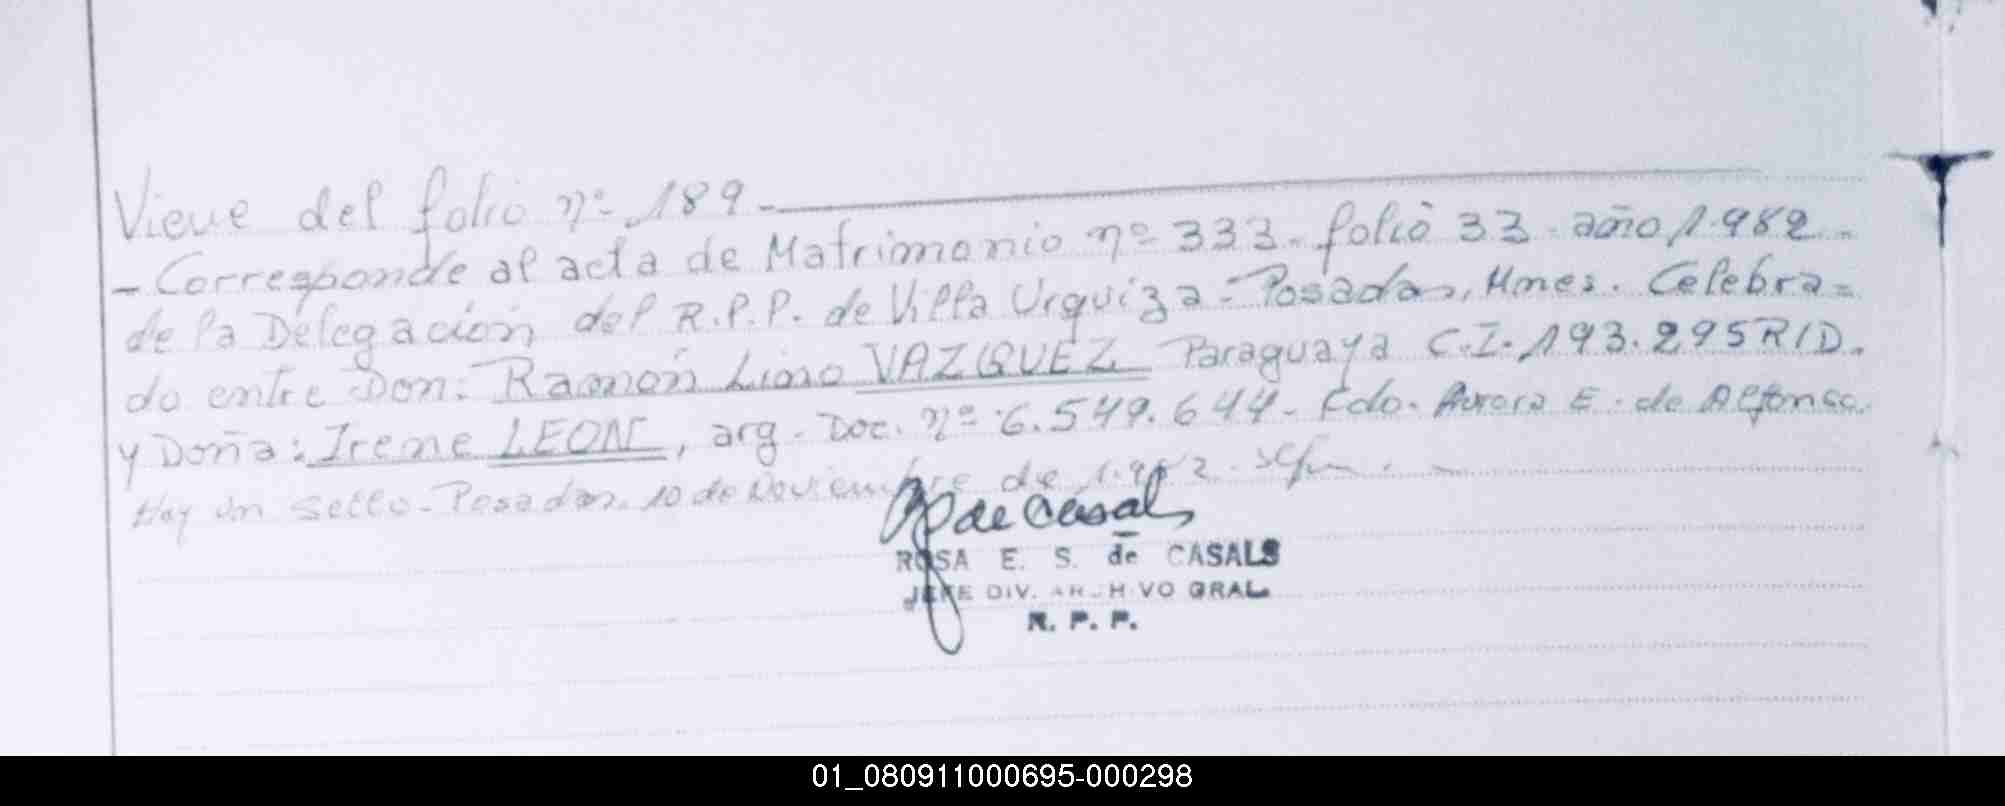 Viene del folio nº 189.-
- Corresponde al acta de Matrimonio nº 333. folio 33 año 1.982.-
de la Delegación del R.P.P. de Villa Urquiza - Posadas, Mnes. Celebra=
do entre Don: Ramón Lino VAZQUEZ Paraguaya C.I. 193.295 R/D.
y Doña: Irene LEON, arg. Doc. nº 6.549.644 - Fdo. Aurora E. de Alfonso.
Hay un sello - Posadas, 10 de Noviembre de 1.982.
de Casals
ROSA E. S. de CASALS
JEFE DIV. ARCHIVO GRAL
R. P. P.
01_080911000695-000298